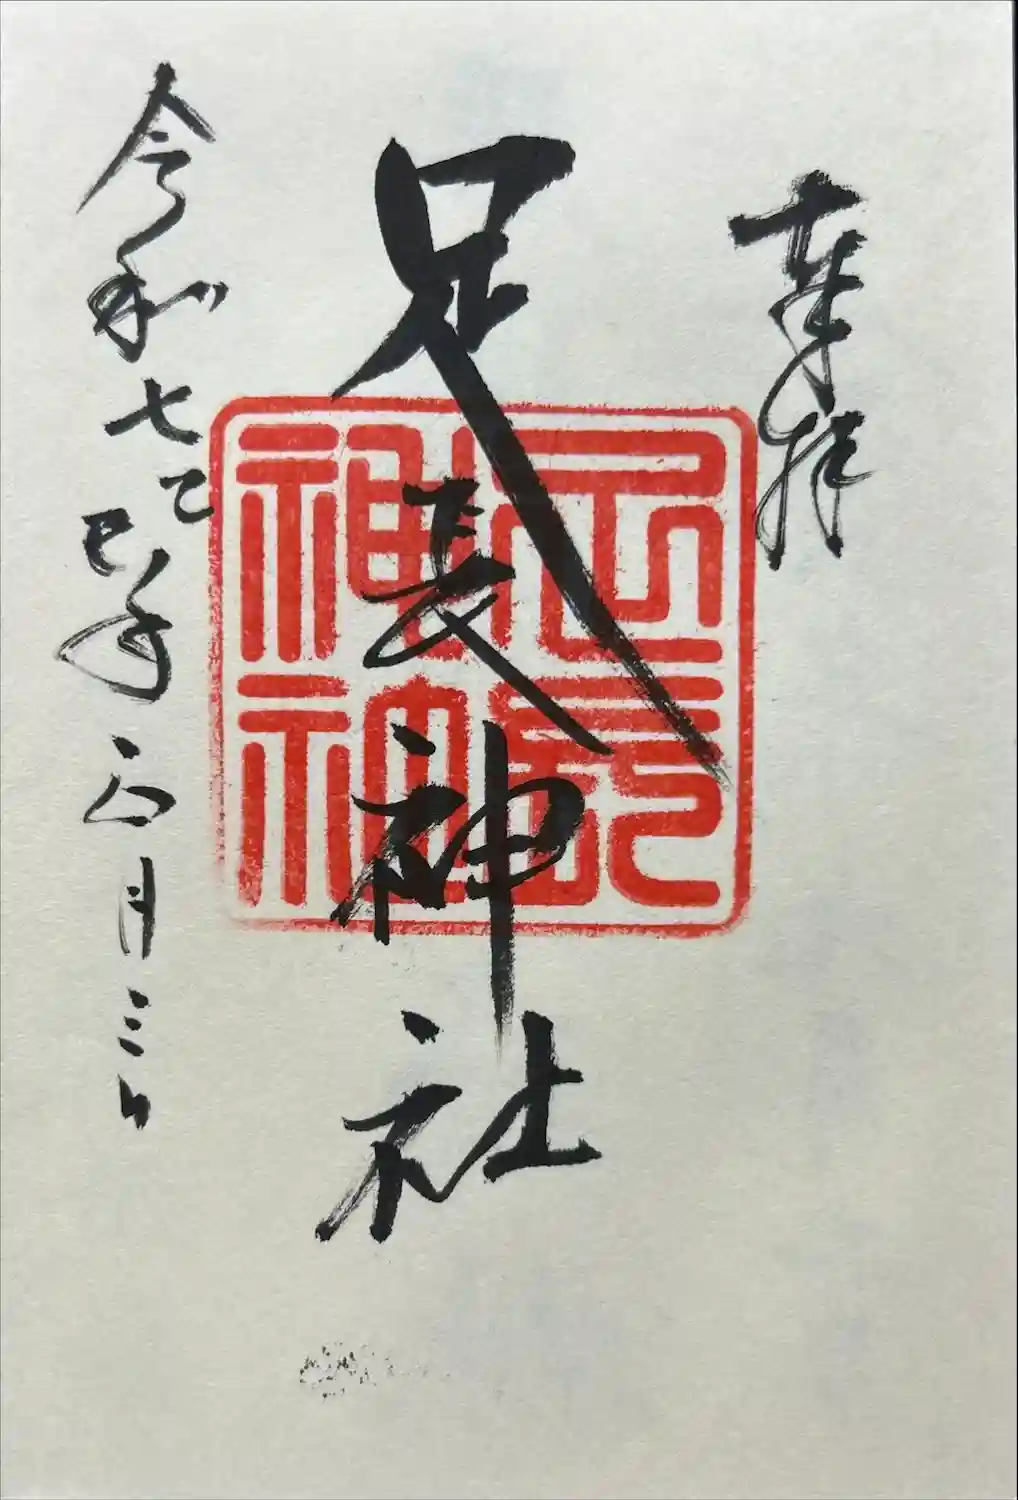 奉拝
足長神社
足長神社
令和七乙巳年三月三日